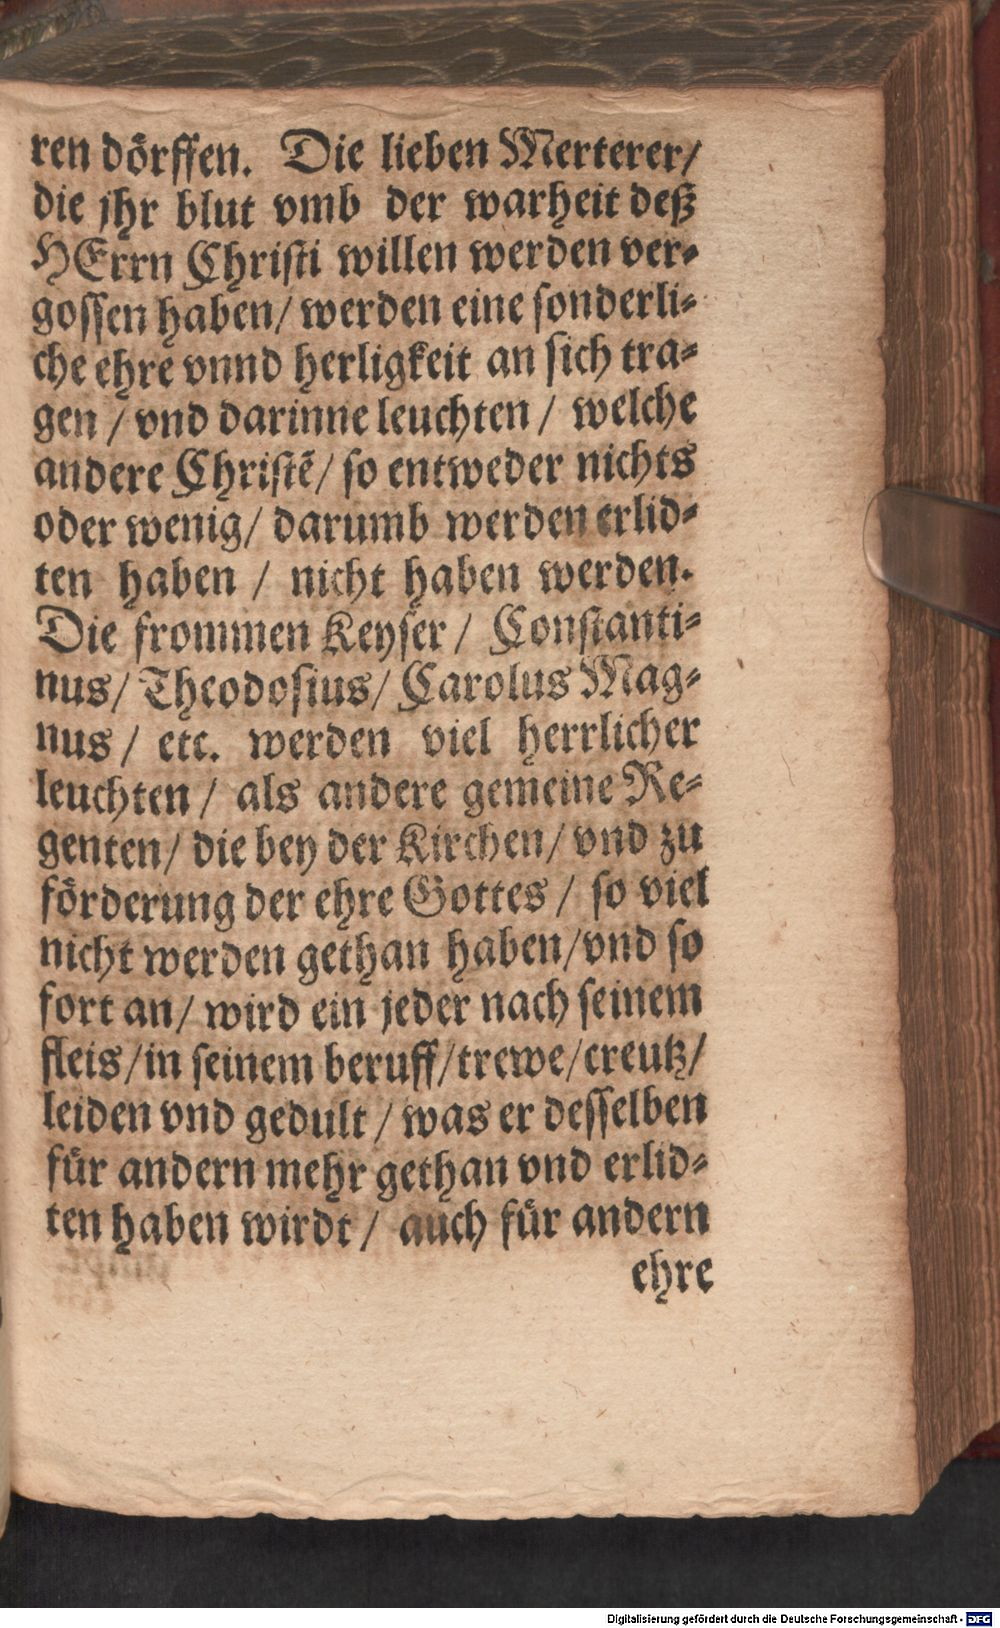 ren dörffen. Die lieben Merterer/
die jhr blut vmb der warheit deß
HErrn Christi willen werden ver-
gossen haben/ werden eine sonderli-
che ehre vnnd herligkeit an sich tra-
gen / vnd darinne leuchten / welche
andere Christē/ so entweder nichts
oder wenig/ darumb werden erlid-
ten haben / nicht haben werden.
Die frommen Keyser / Constanti-
nus/ Theodosius/ Carolus Mag-
nus / etc. werden viel herrlicher
leuchten / als andere gemeine Re-
genten/ die bey der Kirchen/ vnd zu
förderung der ehre Gottes / so viel
nicht werden gethan haben/vnd so
fort an/ wird ein jeder nach seinem
fleis/in seinem beruff/trewe/creutz/
leiden vnd gedult / was er desselben
für andern mehr gethan vnd erlid-
ten haben wirdt / auch für andern
ehre
Digitalisierung gefördert durch die Deutsche Forschungsgemeinschaft - DFG